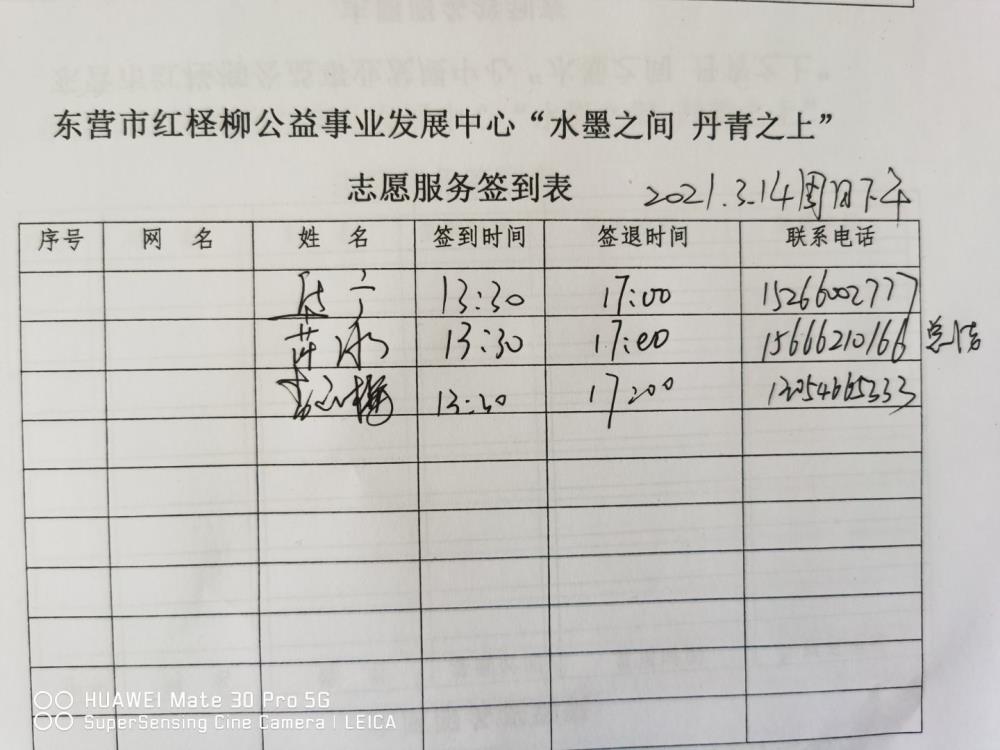 东营市红柽柳公益事业发展中心“水墨之间 丹青之上”
志愿服务签到表 2021.3.14周日下午
序号 网 名 姓 名 签到时间 签退时间 联系电话
13:30 17:00 15266002777
13:30 17:00 15666210166 总结
13:30 17:00
HUAWEI Mate 30 Pro 5G
SuperSensing Cine Camera | LEICA